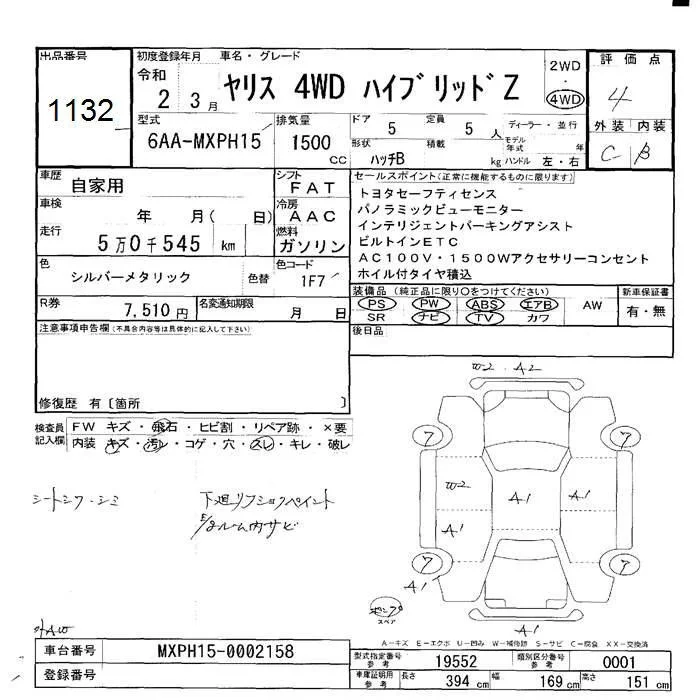 出品番号
1132
初度登録年月
令和
2 3月
車名・グレード
ヤリス 4WD ハイブリッドZ
2WD
・
4WD
評価点
4
外装 内装
C B
型式
6AA-MXPH15
排気量
1500
CC
ドア
5
定員
5 人
形状
ハッチB
積載
kg
ディーラー・並行
モデル年式 年
ハンドル 左・右
車歴
自家用
車検
年 月( 日)
走行
5万0千545 km
シフト
FAT
冷房
AAC
燃料
ガソリン
セールスポイント(正常に機能するものに限ります)
トヨタセーフティセンス
パノラミックビューモニター
インテリジェントパーキングアシスト
ビルトインETC
AC100V・1500Wアクセサリーコンセント
ホイル付タイヤ積込
色
シルバーメタリック
色替
色コード
1F7
R券
7,510円
名変通知期限
月 日
装備品(純正品に限り○をつけてください)
PS PW ABS エアB AW
SR ナビ TV カワ
新車保証書
有・無
後日品
注意事項申告欄(不具合内容等は具体的に記入して下さい)
修復歴 有〔箇所 〕
検査員
記入欄
FW キズ・飛石・ヒビ割・リペア跡・×要
内装 キズ・汚レ・コゲ・穴・スレ・キレ・破レ
シートシワ・シミ
下廻リフショクペイント
E/gルーム内サビ
W2 A2
ア ア
W2
A1
A1
A1
ア ア
A1
A1
ポンプ
スペア
A-キズ E-エクボ U-凹み W-補修跡 S-サビ C-腐食 XX-交換済
車台番号
MXPH15-0002158
登録番号
型式指定番号
参考
19552
類別区分番号
参考
0001
車庫証明用
参考
長さ
394 cm
幅
169 cm
高さ
151 cm